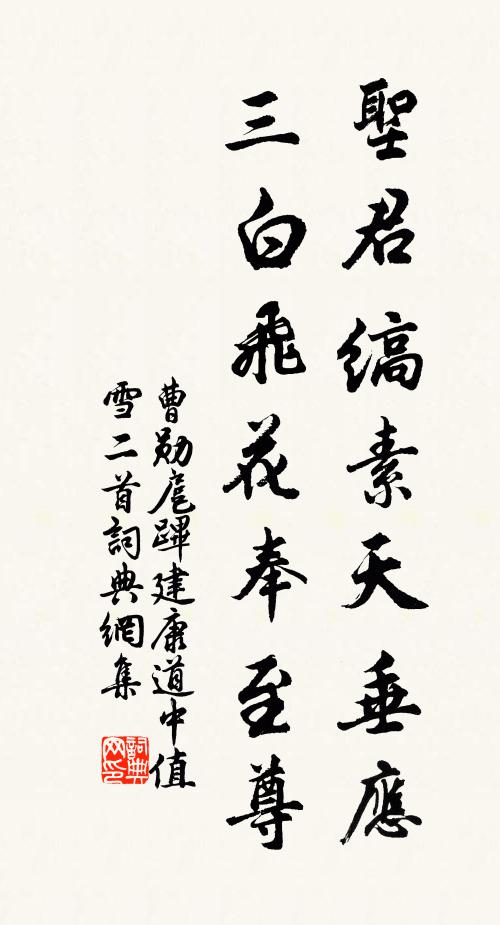 聖君縞素天垂應
三白飛花奉至尊
曹勛扈蹕建康道中值
雪二首詞典網集
詞典网印